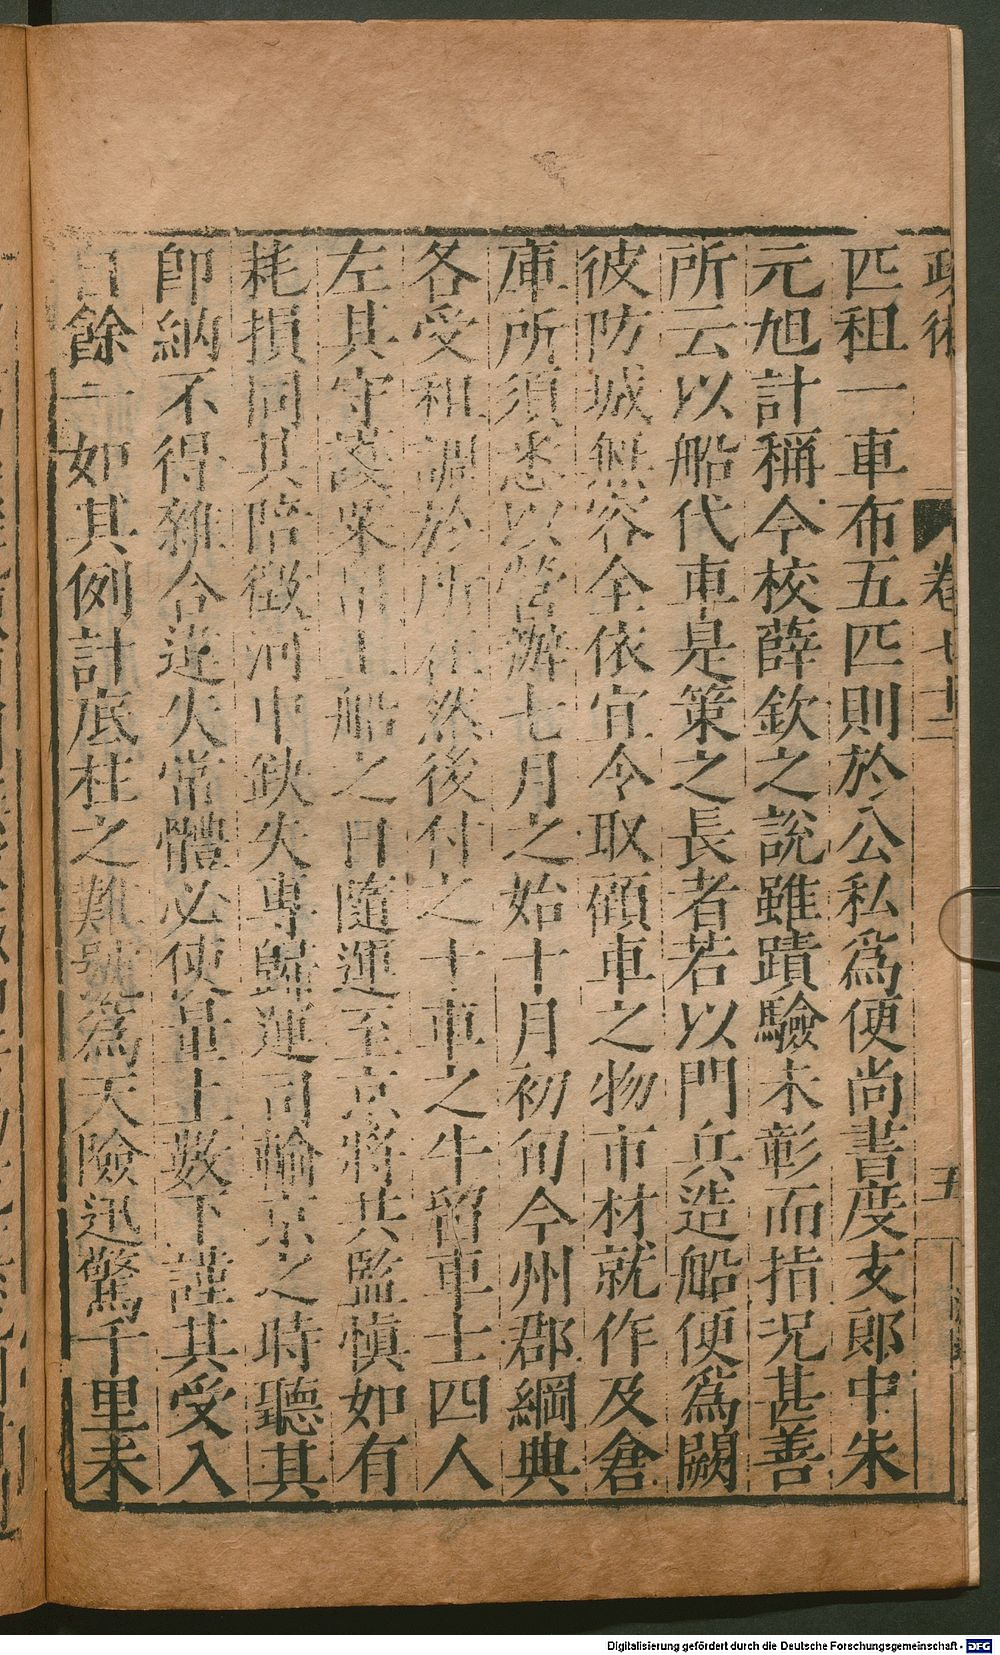 政術 卷七十三 五
匹租一車布五匹則於公私爲便尚書度支郎中朱
元旭計稱今校薛欽之說雖蹟驗未彰而指況甚善
所云以船代車是策之長者若以門兵造船便爲闕
彼防城無容全依宜令取顧車之物市材就作及倉
庫所須悉以營辦七月之始十月初旬令州郡綱典
各受租調於所在然後付之十車之牛留車士四人
左其守護粟帛上船之日隨運至京將共監愼如有
耗損同其陪徵河中缺失專歸運司輸京之時聽其
即納不得雜合違失常體必使量上數下謹其受入
自餘一如其例計底柱之難號爲天險迅驚千里未
Digitalisierung gefördert durch die Deutsche Forschungsgemeinschaft - DFG